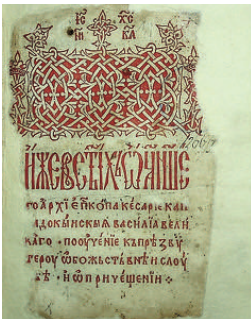 ІС ХС
НИ КА
ИЖЕ ВЪ СТЫХЪ
го архїепкопа кесарїе кап
адокыискыѧ василїа вели
каго · поѹченїе къ презвѵ
тероу ѡ божьствнѣи слоу
жбѣ · и ѡ причещенїи